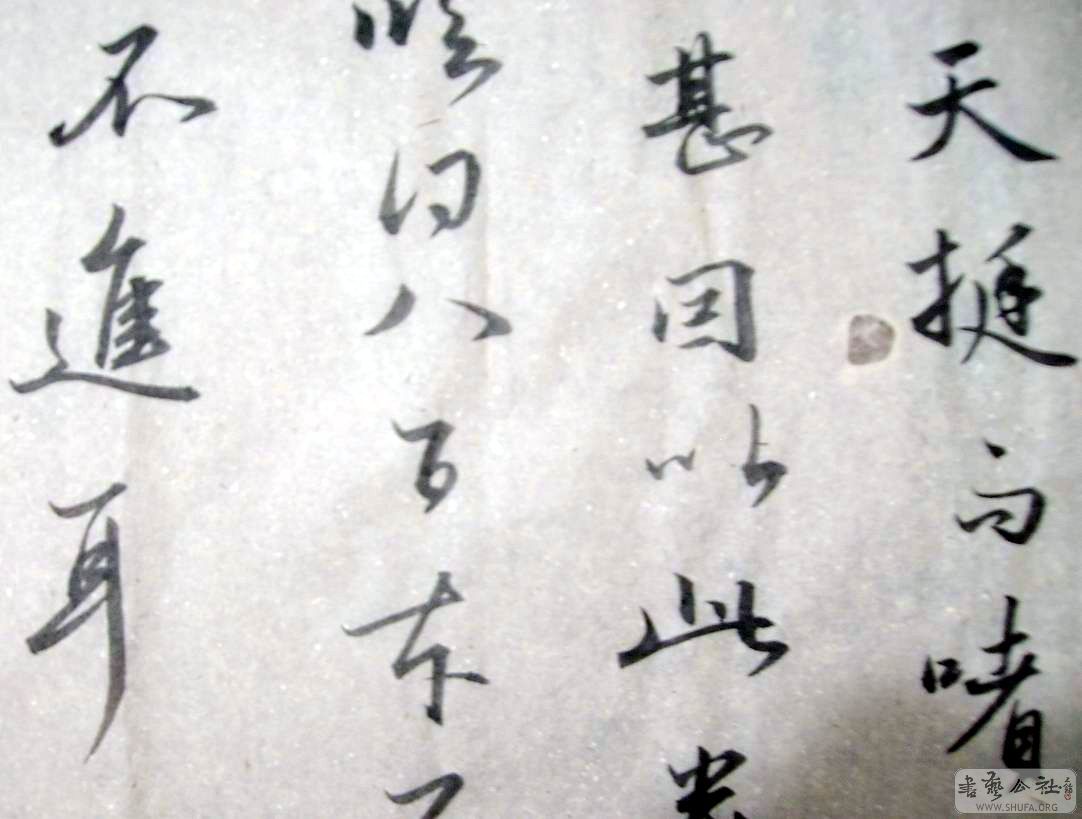 天挺而嗜
甚因以此卷
臨得八百本
不進耳
書藝公社
WWW.SHUFA.ORG